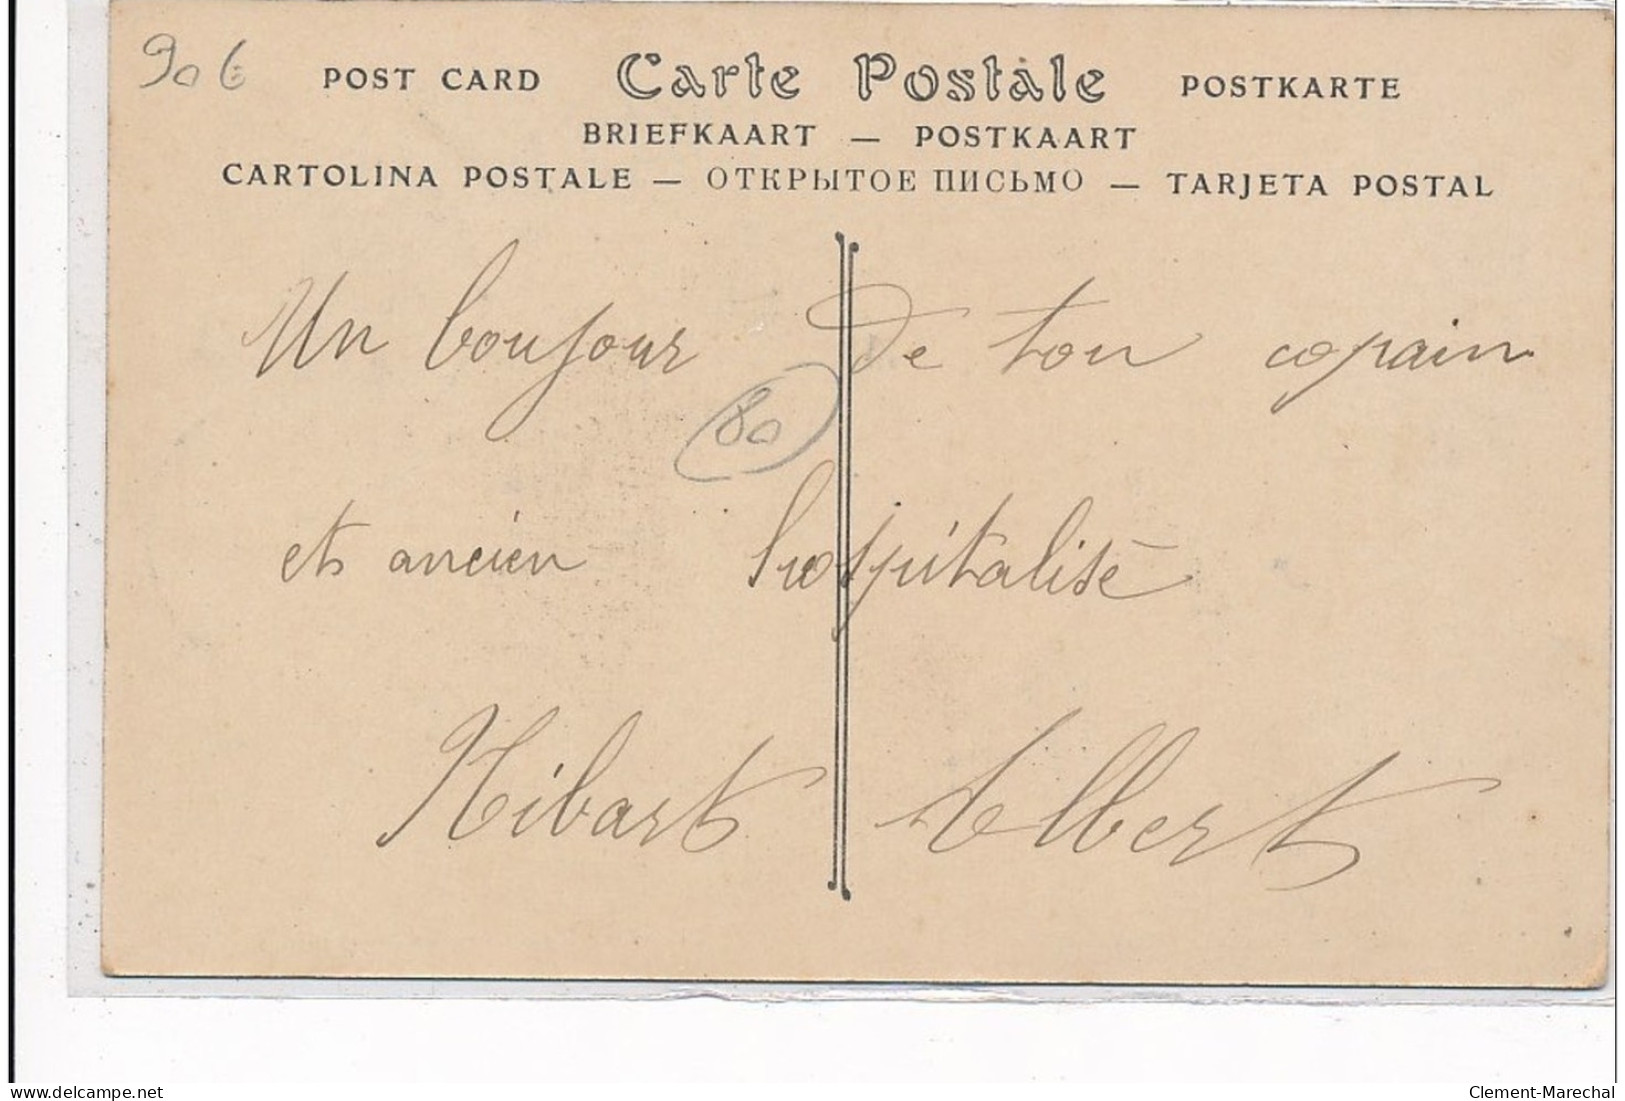 906
POST CARD Carte Postale POSTKARTE
BRIEFKAART — POSTKAART
CARTOLINA POSTALE — ОТКРЫТОЕ ПИСЬМО — TARJETA POSTAL
Un boujour de ton copain
80
et ancien hospitalisé
Hibart Albert
www.delcampe.net
Clement-Marechal